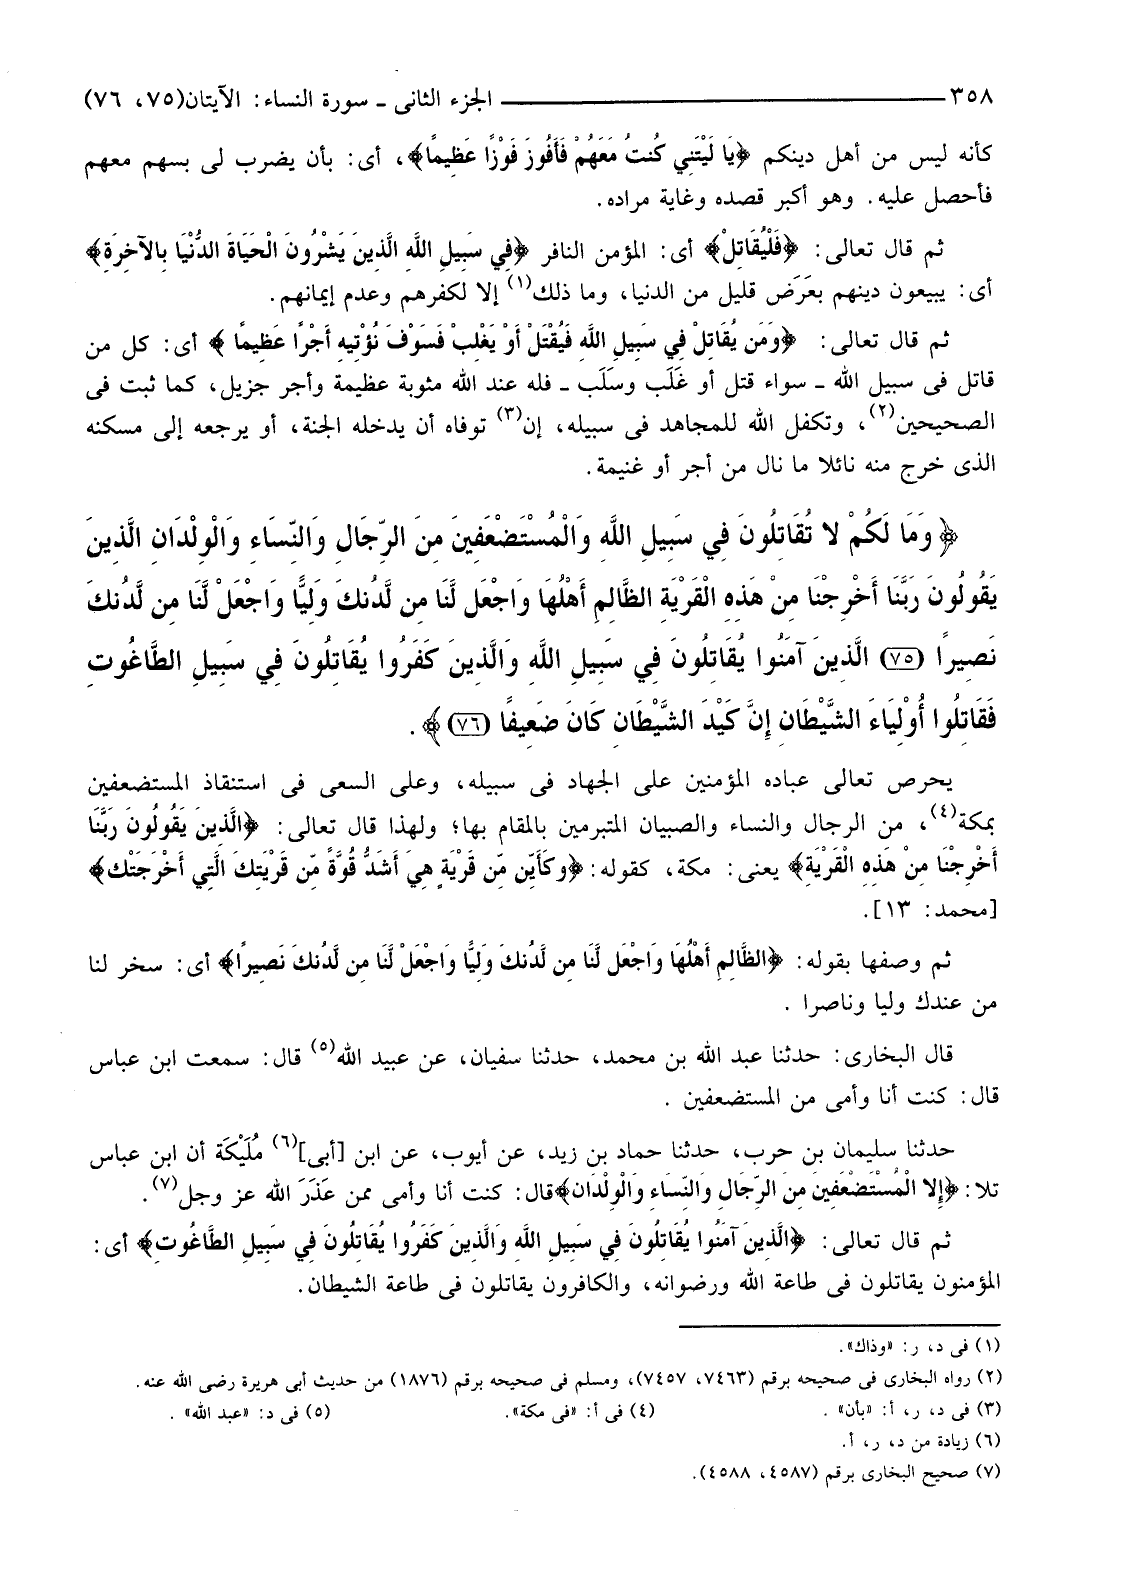 ٣٥٨ ــــــ الجزء الثانى ـ سورة النساء: الآيتان(٧٥، ٧٦)
كأنه ليس من أهل دينكم ﴿يَا لَيْتَنِي كُنتُ مَعَهُمْ فَأَفُوزَ فَوْزًا عَظِيمًا﴾، أى: بأن يضرب لى بسهم معهم
فأحصل عليه. وهو أكبر قصده وغاية مراده.
ثم قال تعالى: ﴿فَلْيُقَاتِلْ﴾ أى: المؤمن النافر ﴿فِي سَبِيلِ اللَّهِ الَّذِينَ يَشْرُونَ الْحَيَاةَ الدُّنْيَا بِالآخِرَةِ﴾
أى: يبيعون دينهم بعَرَض قليل من الدنيا، وما ذلك(١) إلا لكفرهم وعدم إيمانهم.
ثم قال تعالى: ﴿وَمَن يُقَاتِلْ فِي سَبِيلِ اللَّهِ فَيُقْتَلْ أَوْ يَغْلِبْ فَسَوْفَ نُؤْتِيهِ أَجْرًا عَظِيمًا ﴾ أى: كل من
قاتل فى سبيل الله ـ سواء قتل أو غَلَب وسَلَب ـ فله عند الله مثوبة عظيمة وأجر جزيل، كما ثبت فى
الصحيحين(٢)، وتكفل الله للمجاهد فى سبيله، إن(٣) توفاه أن يدخله الجنة، أو يرجعه إلى مسكنه
الذى خرج منه نائلا ما نال من أجر أو غنيمة.
﴿ وَمَا لَكُمْ لا تُقَاتِلُونَ فِي سَبِيلِ اللَّهِ وَالْمُسْتَضْعَفِينَ مِنَ الرِّجَالِ وَالنِّسَاءِ وَالْوِلْدَانِ الَّذِينَ
يَقُولُونَ رَبَّنَا أَخْرِجْنَا مِنْ هَذِهِ الْقَرْيَةِ الظَّالِمِ أَهْلُهَا وَاجْعَل لَّنَا مِن لَّدُنكَ وَلِيًّا وَاجْعَلْ لَّنَا مِن لَّدُنكَ
نَصِيرًا (٧٥) الَّذِينَ آمَنُوا يُقَاتِلُونَ فِي سَبِيلِ اللَّهِ وَالَّذِينَ كَفَرُوا يُقَاتِلُونَ فِي سَبِيلِ الطَّاغُوتِ
فَقَاتِلُوا أَوْلِيَاءَ الشَّيْطَانِ إِنَّ كَيْدَ الشَّيْطَانِ كَانَ ضَعِيفًا (٧٦)﴾ .
يحرص تعالى عباده المؤمنين على الجهاد فى سبيله، وعلى السعى فى استنقاذ المستضعفين
بمكة(٤)، من الرجال والنساء والصبيان المتبرمين بالمقام بها؛ ولهذا قال تعالى: ﴿الَّذِينَ يَقُولُونَ رَبَّنَا
أَخْرِجْنَا مِنْ هَذِهِ الْقَرْيَةِ﴾ يعنى: مكة، كقوله: ﴿وَكَأَيِّن مِّن قَرْيَةٍ هِيَ أَشَدُّ قُوَّةً مِّن قَرْيَتِكَ الَّتِي أَخْرَجَتْكَ﴾
[محمد: ١٣].
ثم وصفها بقوله: ﴿الظَّالِمِ أَهْلُهَا وَاجْعَل لَّنَا مِن لَّدُنكَ وَلِيًّا وَاجْعَلْ لَّنَا مِن لَّدُنكَ نَصِيرًا﴾ أى: سخر لنا
من عندك وليا وناصرا .
قال البخارى: حدثنا عبد الله بن محمد، حدثنا سفيان، عن عبيد الله(٥) قال: سمعت ابن عباس
قال: كنت أنا وأمى من المستضعفين .
حدثنا سليمان بن حرب، حدثنا حماد بن زيد، عن أيوب، عن ابن [أبى](٦) مُلَيْكَة أن ابن عباس
تلا: ﴿إِلا الْمُسْتَضْعَفِينَ مِنَ الرِّجَالِ وَالنِّسَاءِ وَالْوِلْدَانِ﴾قال: كنت أنا وأمى ممن عَذَرَ الله عز وجل(٧).
ثم قال تعالى: ﴿الَّذِينَ آمَنُوا يُقَاتِلُونَ فِي سَبِيلِ اللَّهِ وَالَّذِينَ كَفَرُوا يُقَاتِلُونَ فِي سَبِيلِ الطَّاغُوتِ﴾ أى:
المؤمنون يقاتلون فى طاعة الله ورضوانه، والكافرون يقاتلون فى طاعة الشيطان.
(١) فى د، ر: «وذاك».
(٢) رواه البخارى فى صحيحه برقم (٧٤٦٣، ٧٤٥٧)، ومسلم فى صحيحه برقم (١٨٧٦) من حديث أبى هريرة رضى الله عنه.
(٣) فى د، ر، أ: «بأن» . (٤) فى أ: «فى مكة». (٥) فى د: «عبد الله» .
(٦) زيادة من د، ر، أ.
(٧) صحيح البخارى برقم (٤٥٨٧، ٤٥٨٨).